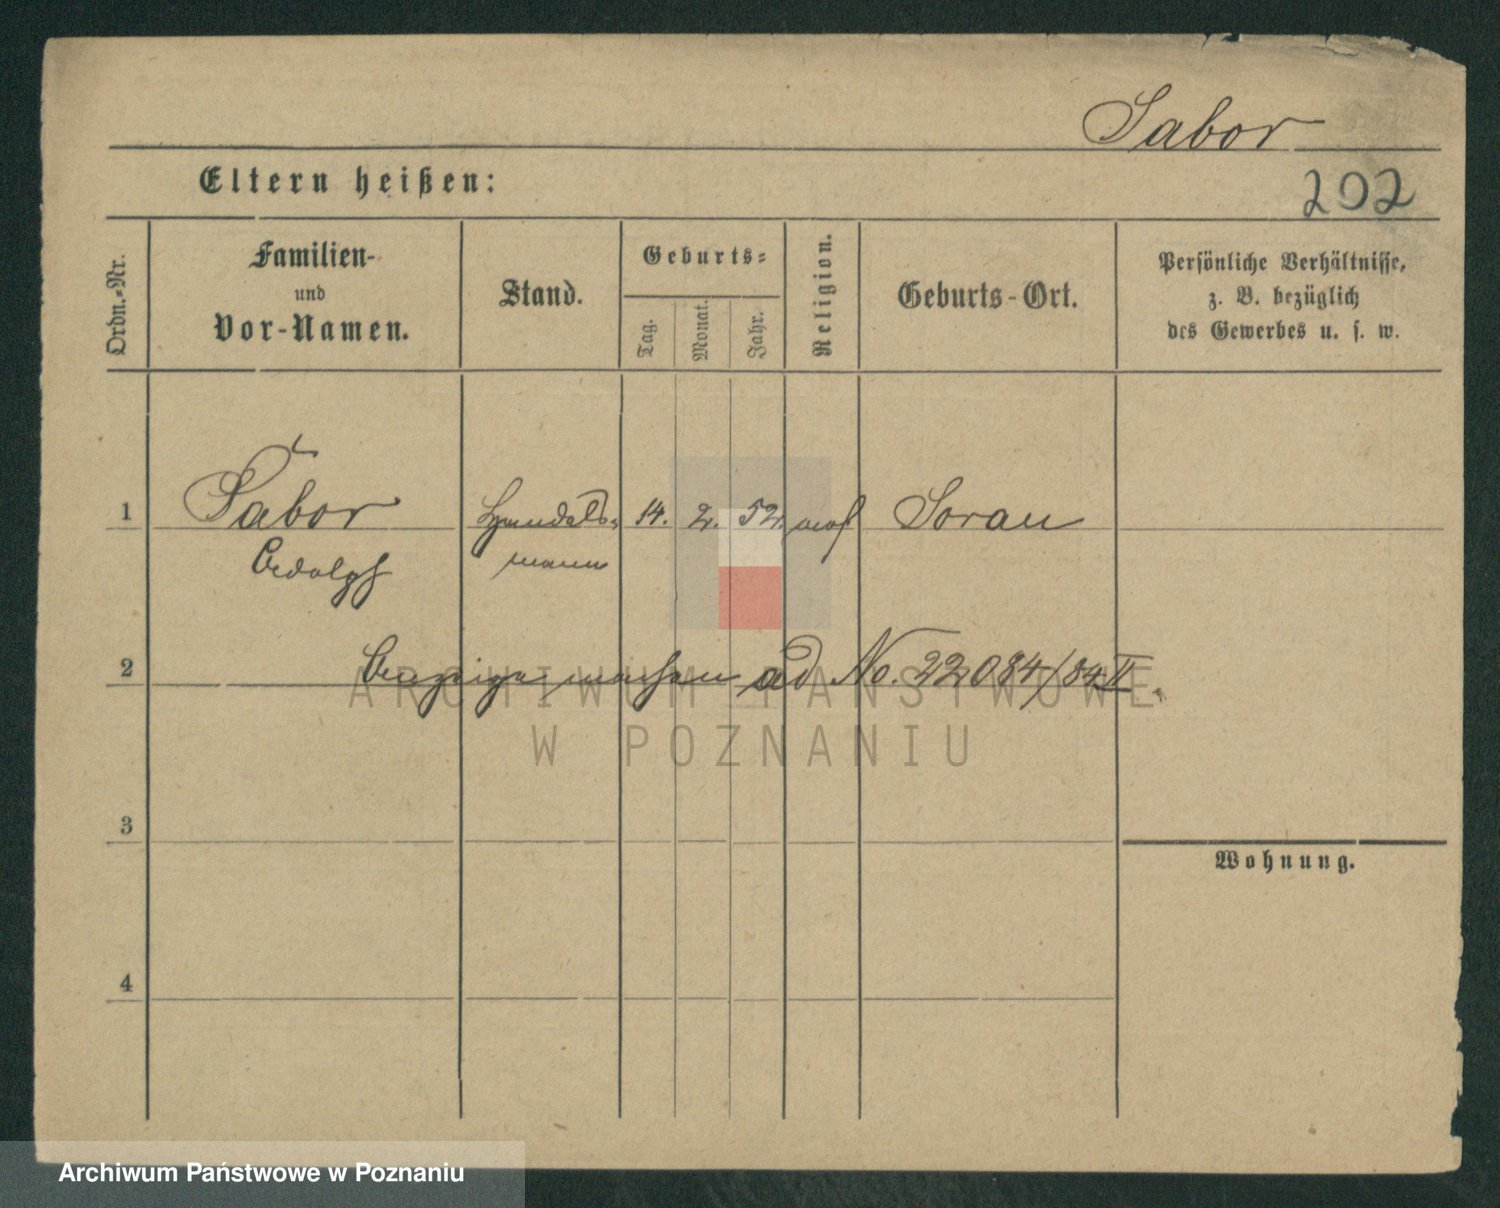 Sabor
Eltern heißen:
202
Ordn.-Nr.
Familien-
und
Vor-Namen.
Stand.
Geburts-
Tag.
Monat.
Jahr.
Religion.
Geburts-Ort.
Persönliche Verhältnisse,
z. B. bezüglich
des Gewerbes u. s. w.
1 Sabor Handels- 14. 2. 52. mos Sorau
Adolph mann
2 Anzeige machen ad No. 22084/84 II.
ARCHIWUM PAŃSTWOWE
W POZNANIU
3
Wohnung.
4
Archiwum Państwowe w Poznaniu